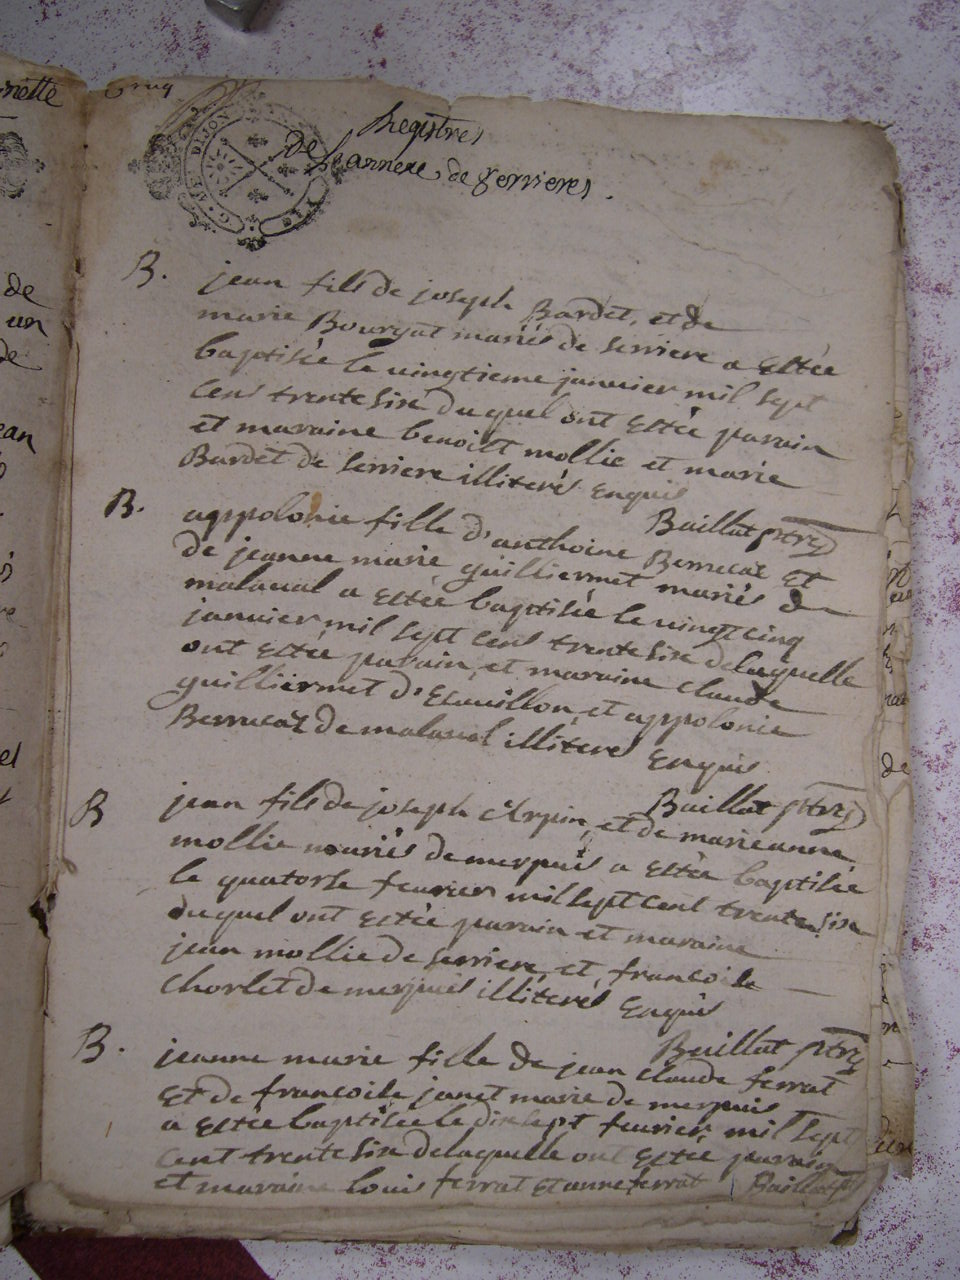 nette
Registres
de L'annere de Serrieres.
B. jean fils de joseph Bardet, et de
marie Bourgat mariés de Serriere a Estée
baptisée le vingtieme janvier mil sept
cens trente six duquel ont Estée parain
et maraine benoist mollie et marie
Bardet de Serriere illiterés Enquis
Baillat ptre
B. appolonie fille d'anthoine Berrucat Et
de jeanne marie guilliermet mariés de
malaval a Estée baptisée le vingt cinq
janvier mil sept cens trente six delaquelle
ont Estée parain, et maraine claude
guilliermet d'Etavillon, et appolonie
Berrucaz de malaval illiteres Enquis
Baillat ptre
B jean fils de joseph Arpin, et de marieanne
mollie mariés de merpuis a Estée baptisée
le quatorse fevrier mil sept cent trente six
duquel ont Estée parain et maraine
jean mollie de Serriere, et francoise
Chorlet de merpuis illiterés Enquis
Baillat ptre
B. jeanne marie fille de jean claude ferrat
Et de francoise janet marie de merpuis
a Estée baptisée le dix sept fevrier mil sept
cent trente six delaquelle ont Estée parain
et maraine louis ferrat Et anne ferrat Baillat
DIJON
de
un
de